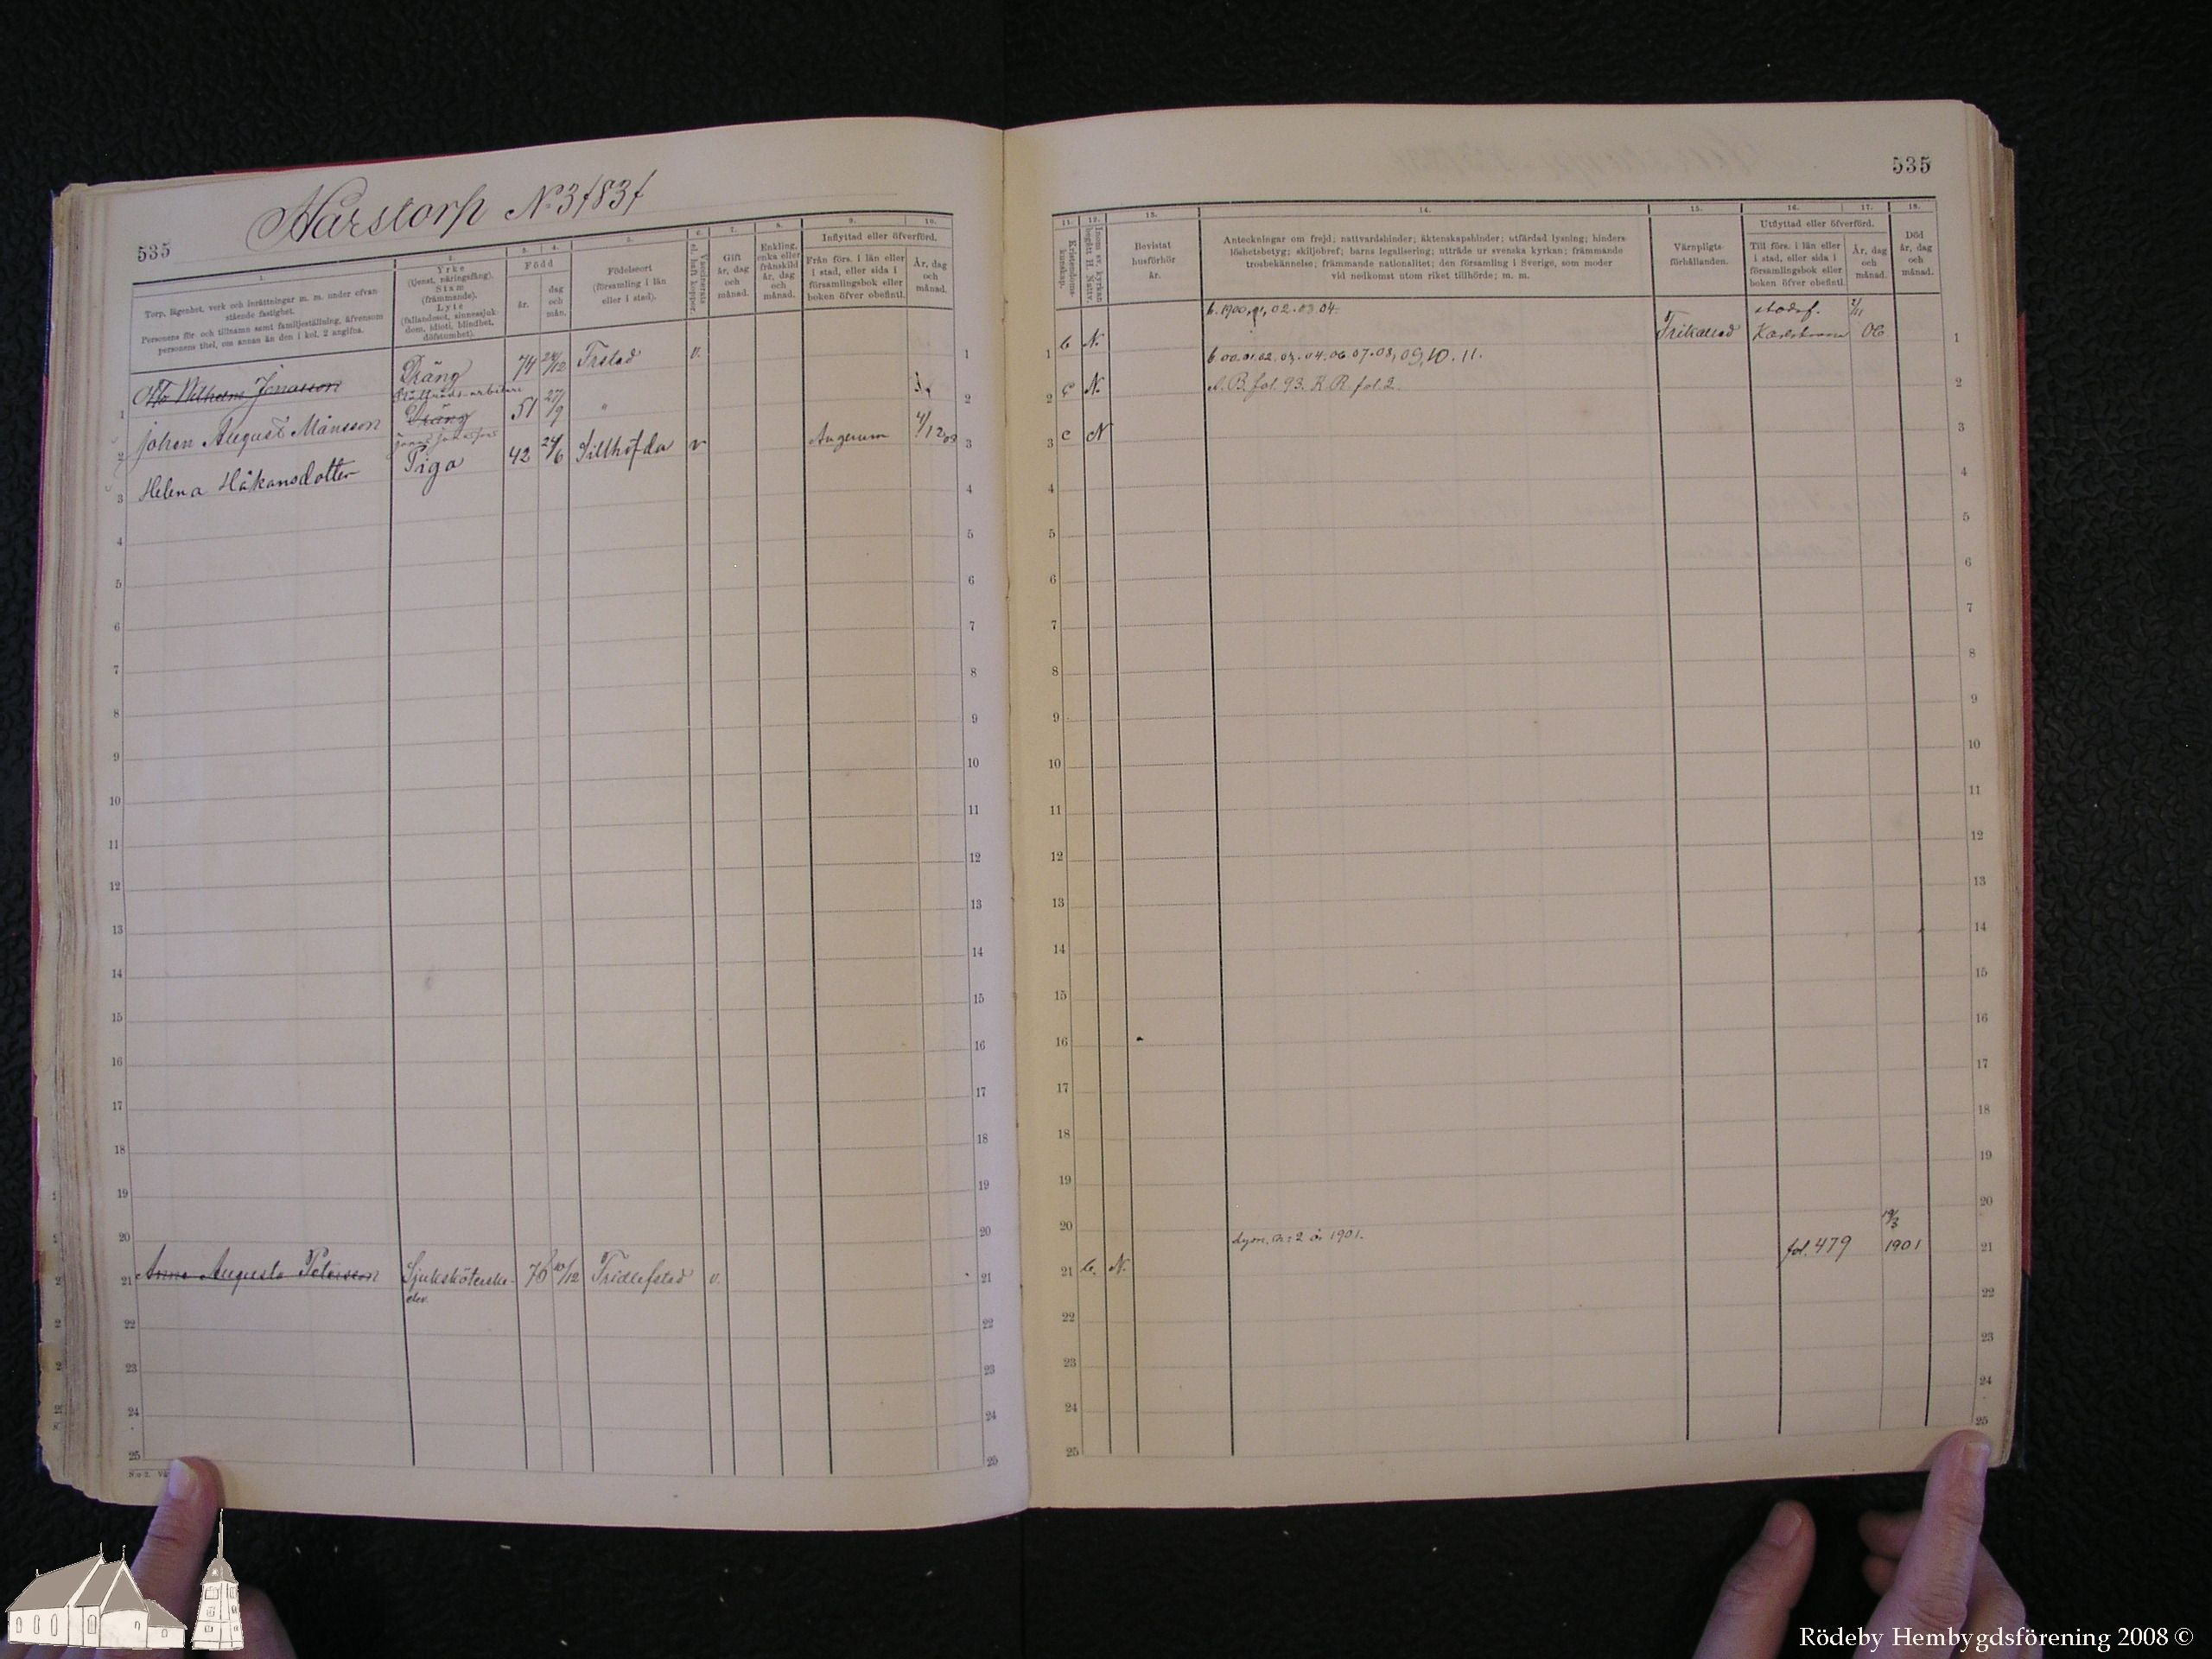 535
Harstorp N:o 3/83/
1.
Torp, lägenhet, verk och inrättningar m. m. under ofvan
stående fastighet.
Personens för- och tillnamn samt familjeställning, äfvensom
personens titel, om annan än den i kol. 2 angifna.
2.
Yrke
(tjenst, näringsfång).
Stam
(främmande).
Lyte
(fallandesot, sinnessjuk-
dom, idioti, blindhet,
döfstumhet).
3.
4.
Född
år.
dag
och
mån.
5.
Födelseort
(församling i län
eller i stad).
6.
Vaccinerats
el. haft koppor.
7.
Gift
år, dag
och
månad.
8.
Enkling,
enka eller
frånskild
år, dag
och
månad.
9.
10.
Inflyttad eller öfverförd.
Från förs. i län eller
i stad, eller sida i
församlingsbok eller
boken öfver obefintl.
År, dag
och
månad.
1 Otto Wilhelm Jonasson Dräng 74 24/12 v. 1
2 Johan August Månsson Dräng 51 27/9 " 2
3 Helena Håkansdotter Piga 42 24/6 Sillhöfda v Augerum 4/12 3
4 4
5 5
6 6
7 7
8 8
9 9
10 10
11 11
12 12
13 13
14 14
15 15
16 16
17 17
18 18
19 19
20 20
21 Anna Augusta Peterson Sjuksköterske- 76 10/12 Fridlefstad v. 21
elev.
22 22
23 23
24 24
25 25
N:o 2.
535
11.
Kristendoms-
kunskap.
12.
Inom sv. kyrkan
begått H. Nattv.
13.
Bevistat
husförhör
år.
14.
Anteckningar om frejd; nattvardshinder; äktenskapshinder; utfärdad lysning; hinders-
löshetsbetyg; skiljobref; barns legalisering; utträde ur svenska kyrkan; främmande
trosbekännelse; främmande nationalitet; den församling i Sverige, som moder
vid nedkomst utom riket tillhörde; m. m.
15.
Värnpligts-
förhållanden.
16.
17.
Utflyttad eller öfverförd.
Till förs. i län eller
i stad, eller sida i
församlingsbok eller
boken öfver obefintl.
År, dag
och
månad.
18.
Död
år, dag
och
månad.
b. 1900, 01, 02. 03. 04. stadsf.
1 b N. Frikallad Karlskrona 06 1
b 00. 01. 02. 03. 04. 06 07. 08, 09, 10. 11.
2 c N. A. B. fol. 93. K. R. fol. 2. 2
3 c N 3
4 4
5 5
6 6
7 7
8 8
9 9
10 10
11 11
12 12
13 13
14 14
15 15
16 16
17 17
18 18
19 19
20 20
Lysn. n:2 år 1901. 19/3
21 b. N. fol. 479 1901 21
22 22
23 23
24 24
25 25
Rödeby Hembygdsförening 2008 ©